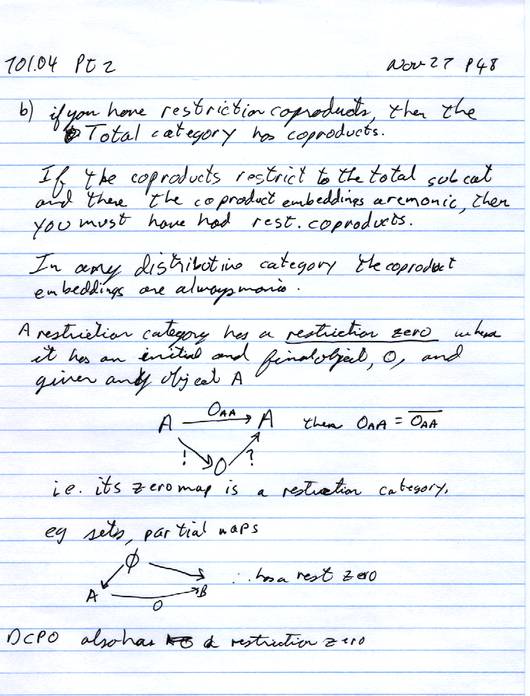 701.04 Pt 2 Nov 27 P48
b) if you have restriction coproducts, then the
Total category has coproducts.
If the coproducts restrict to the total subcat
and there the coproduct embeddings are monic, then
you must have had rest. coproducts.
In any distributive category the coproduct
embeddings are always monic.
A restriction category has a restriction zero when
it has an initial and final object, 0, and
given any object A
A 0AA A then 0AA = 0AA
! 0 ?
i.e. its zero map is a restriction category.
eg sets, partial maps
∅
A 0 B ∴ has a rest zero
DCPO also has a restriction zero